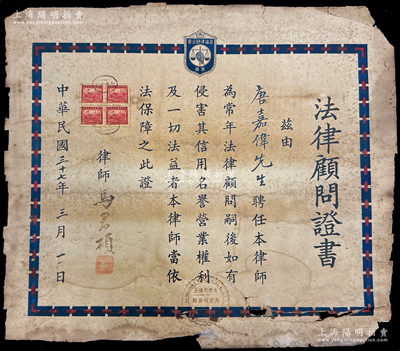 上海陽明拍賣
www.yangmingauction.com
法律顧問證書
茲由
唐嘉偉先生聘任本律師
為常年法律顧問嗣後如有
侵害其信用名譽營業權利
及一切法益者本律師當依
法保障之此證
律師
中華民國三十七年三月一日